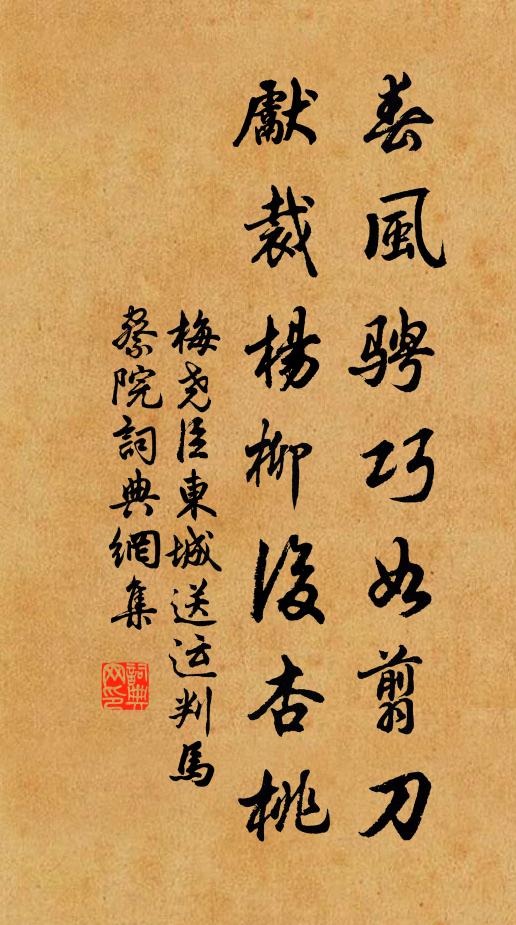 春風騁巧如翦刀
獻裁楊柳後杏桃
梅尧臣東城送运判馬
察院詞典網集
詞典网印